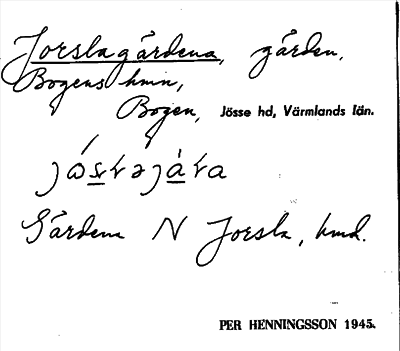 Jorslagårdena, gården,
Bogens hmn,
Bogen, Jösse hd, Värmlands län.
Gårdena N Jorsla, hmd.
PER HENNINGSSON 1945.